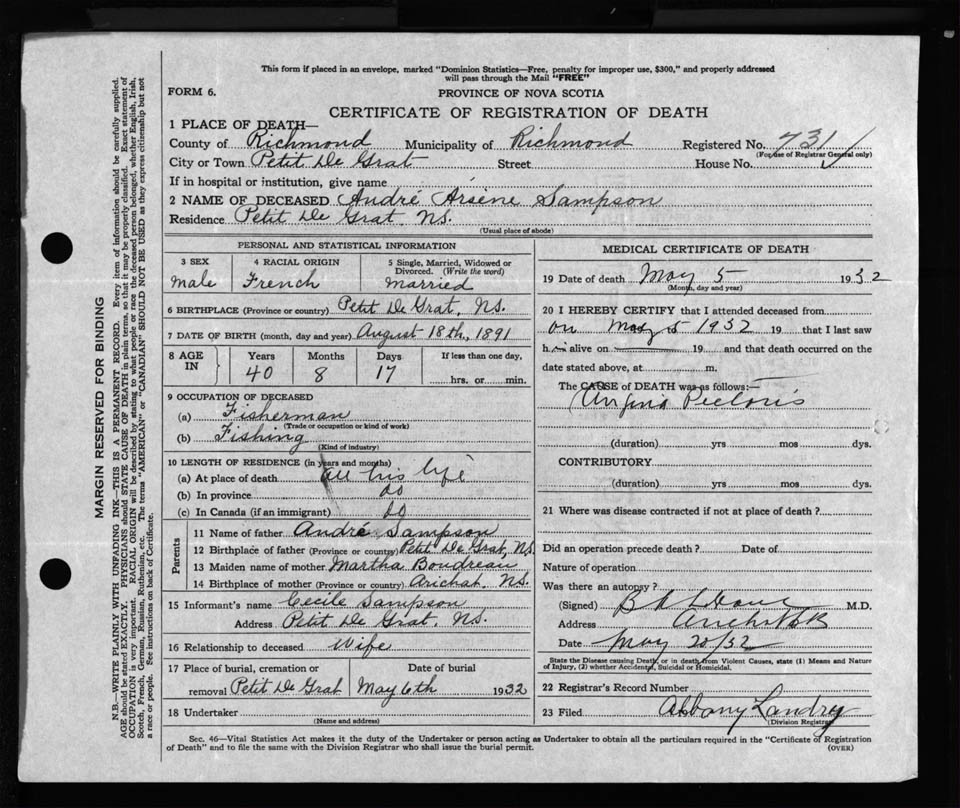 This form if placed in an envelope, marked "Dominion Statistics—Free, penalty for improper use, $300," and properly addressed
will pass through the Mail "FREE"
FORM 6.
PROVINCE OF NOVA SCOTIA
CERTIFICATE OF REGISTRATION OF DEATH
1 PLACE OF DEATH—
County of Richmond Municipality of Richmond Registered No. 731
(For use of Registrar General only)
City or Town Petit De Grat Street House No.
If in hospital or institution, give name
2 NAME OF DECEASED André Arsène Sampson
Residence Petit De Grat, NS.
(Usual place of abode)
PERSONAL AND STATISTICAL INFORMATION
3 SEX 4 RACIAL ORIGIN 5 Single, Married, Widowed or
Divorced. (Write the word)
Male French Married
6 BIRTHPLACE (Province or country) Petit De Grat, NS.
7 DATE OF BIRTH (month, day and year) August 18th, 1891
8 AGE IN Years Months Days If less than one day,
40 8 17 hrs. or min.
9 OCCUPATION OF DECEASED
(a) Fisherman
(Trade or occupation or kind of work)
(b) Fishing
(Kind of industry)
10 LENGTH OF RESIDENCE (in years and months)
(a) At place of death all his life
(b) In province do
(c) In Canada (if an immigrant) do
Parents
11 Name of father André Sampson
12 Birthplace of father (Province or country) Petit De Grat, NS.
13 Maiden name of mother Martha Boudreau
14 Birthplace of mother (Province or country) Arichat, NS.
15 Informant's name Cecile Sampson
Address Petit De Grat, NS.
16 Relationship to deceased Wife
17 Place of burial, cremation or Date of burial
removal Petit De Grat May 6th 1932
18 Undertaker
(Name and address)
MEDICAL CERTIFICATE OF DEATH
19 Date of death May 5 1932
(Month, day and year)
20 I HEREBY CERTIFY that I attended deceased from
on May 5 1932 19 that I last saw
h im alive on 19 and that death occurred on the
date stated above, at m.
The CAUSE of DEATH was as follows:—
Angina Pectoris
(duration) yrs mos dys.
CONTRIBUTORY
(duration) yrs mos dys.
21 Where was disease contracted if not at place of death?
Did an operation precede death? Date of
Nature of operation
Was there an autopsy?
(Signed) M.D.
Address
Date May 20/32
State the Disease causing Death, or in death from Violent Causes, state (1) Means and Nature
of Injury, (2) whether Accidental, Suicidal or Homicidal.
22 Registrar's Record Number
23 Filed Albany Landry
(Division Registrar)
Sec. 46—Vital Statistics Act makes it the duty of the Undertaker or person acting as Undertaker to obtain all the particulars required in the "Certificate of Registration
of Death" and to file the same with the Division Registrar who shall issue the burial permit.
(OVER)
MARGIN RESERVED FOR BINDING
N.B.—WRITE PLAINLY WITH UNFADING INK—THIS IS A PERMANENT RECORD. Every item of information should be carefully supplied.
AGE should be stated EXACTLY. PHYSICIANS should STATE CAUSE OF DEATH in plain terms, so that it may be properly classified. Exact statement of
OCCUPATION is very important. RACIAL ORIGIN will be described by stating to what people or race the deceased person belonged, whether English, Irish,
Scotch, French, German, Russian, Ruthenian, etc. The terms "AMERICAN" or "CANADIAN" SHOULD NOT BE USED as they express citizenship but not
a race or people. See instructions on back of Certificate.